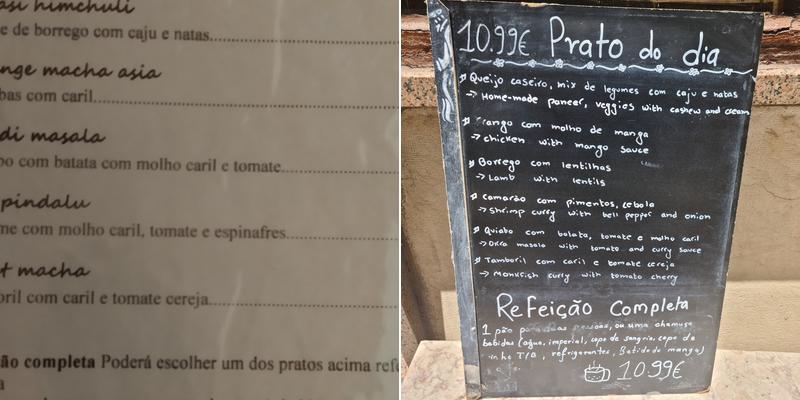 asi himchuli
e de borrego com caju e natas
nge macha asia
bas com caril
di masala
bo com batata com molho caril e tomate
pindalu
me com molho caril, tomate e espinafres
t macha
oril com caril e tomate cereja
ão completa Poderá escolher um dos pratos acima refe
a
10.99€ Prato do dia
Queijo caseiro, mix de legumes com caju e natas
→ Home-made paneer, veggies with cashew and cream
Frango com molho de manga
→ chicken with mango sauce
Borrego com lentilhas
→ Lamb with lentils
camarão com pimentos, cebola
→ Shrimp curry with bell pepper and onion
Quiabo com batata, tomate e molho caril
→ Okra masala with tomato and curry sauce
Tamboril com caril e tomate cereja
→ Monkfish curry with tomato cherry
Refeição Completa
1 pão para duas pessoas, ou uma chamuça
bebidas (água, imperial, copo de sangria, copo de
vinho T/B, refrigerantes, Batido de manga)
10.99€